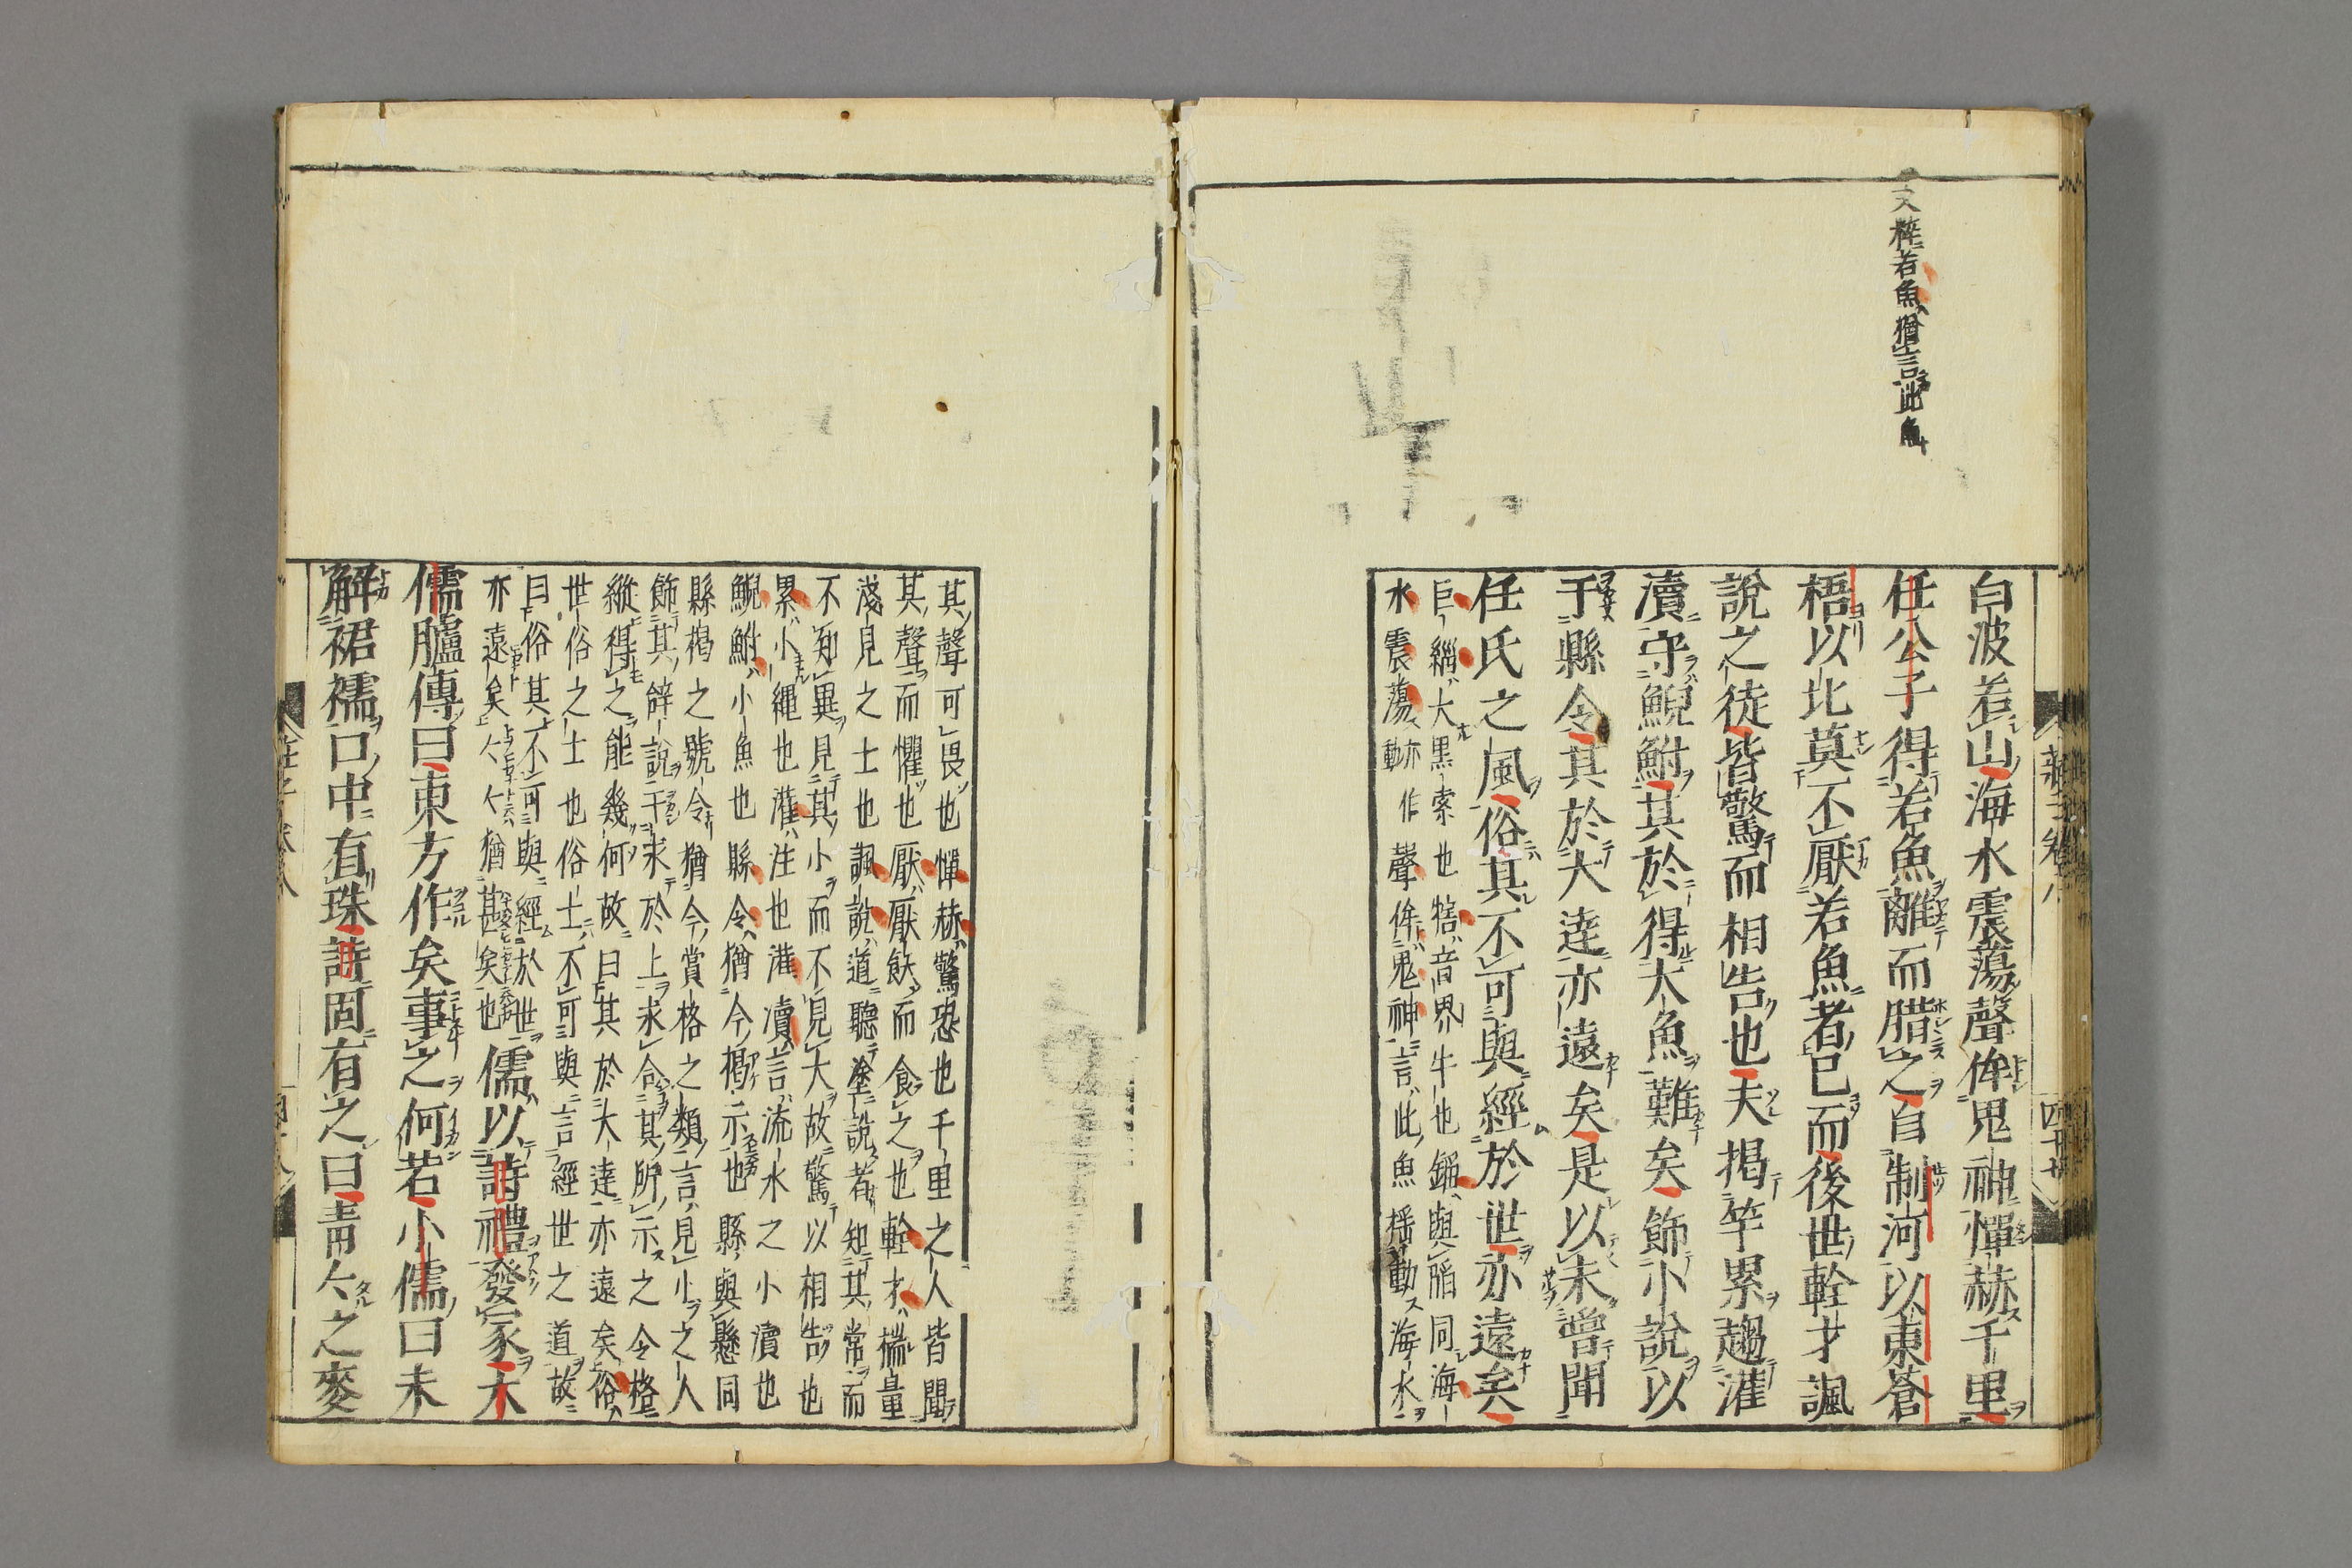 文粹若魚猶言此魚
白波若山海水震蕩聲侔鬼神憚赫千里
任公子得若魚離而腊之自制河以東蒼
梧以北莫不厭若魚者已而後世輇才諷
說之徒皆驚而相告也夫揭竿累趨灌
瀆守鯢鮒其於得大魚難矣飾小說以
干縣令其於大達亦遠矣是以未嘗聞
任氏之風俗其不可與經於世亦遠矣
巨緇大黑索也犗音界牛也錎與陷同海
水震蕩亦作聲侔鬼神言此魚搖動海水
其聲可畏也憚赫驚恐也千里之人皆聞
其聲而懼也厭厭飫而食之也輇才揣量
淺見之士也諷說道聽塗說者知其常而
不知異見其小而不見大故驚以相告也
累小繩也灌注也灌瀆言流水之小瀆也
鯢鮒小魚也縣令猶今揭示也縣與懸同
縣揭之號令猶今賞格之類言見小之人
飾其辭說干求於上求合其所示之令格
縱得之能幾何故曰其於大達亦遠矣俗
世俗之士也俗士不可與言經世之道故
曰俗其不可與經於世
亦遠矣人人猶甚矣也
儒以詩禮發冢大
儒臚傳曰東方作矣事之何若小儒曰未
解裙襦口中有珠詩固有之曰青人之麥